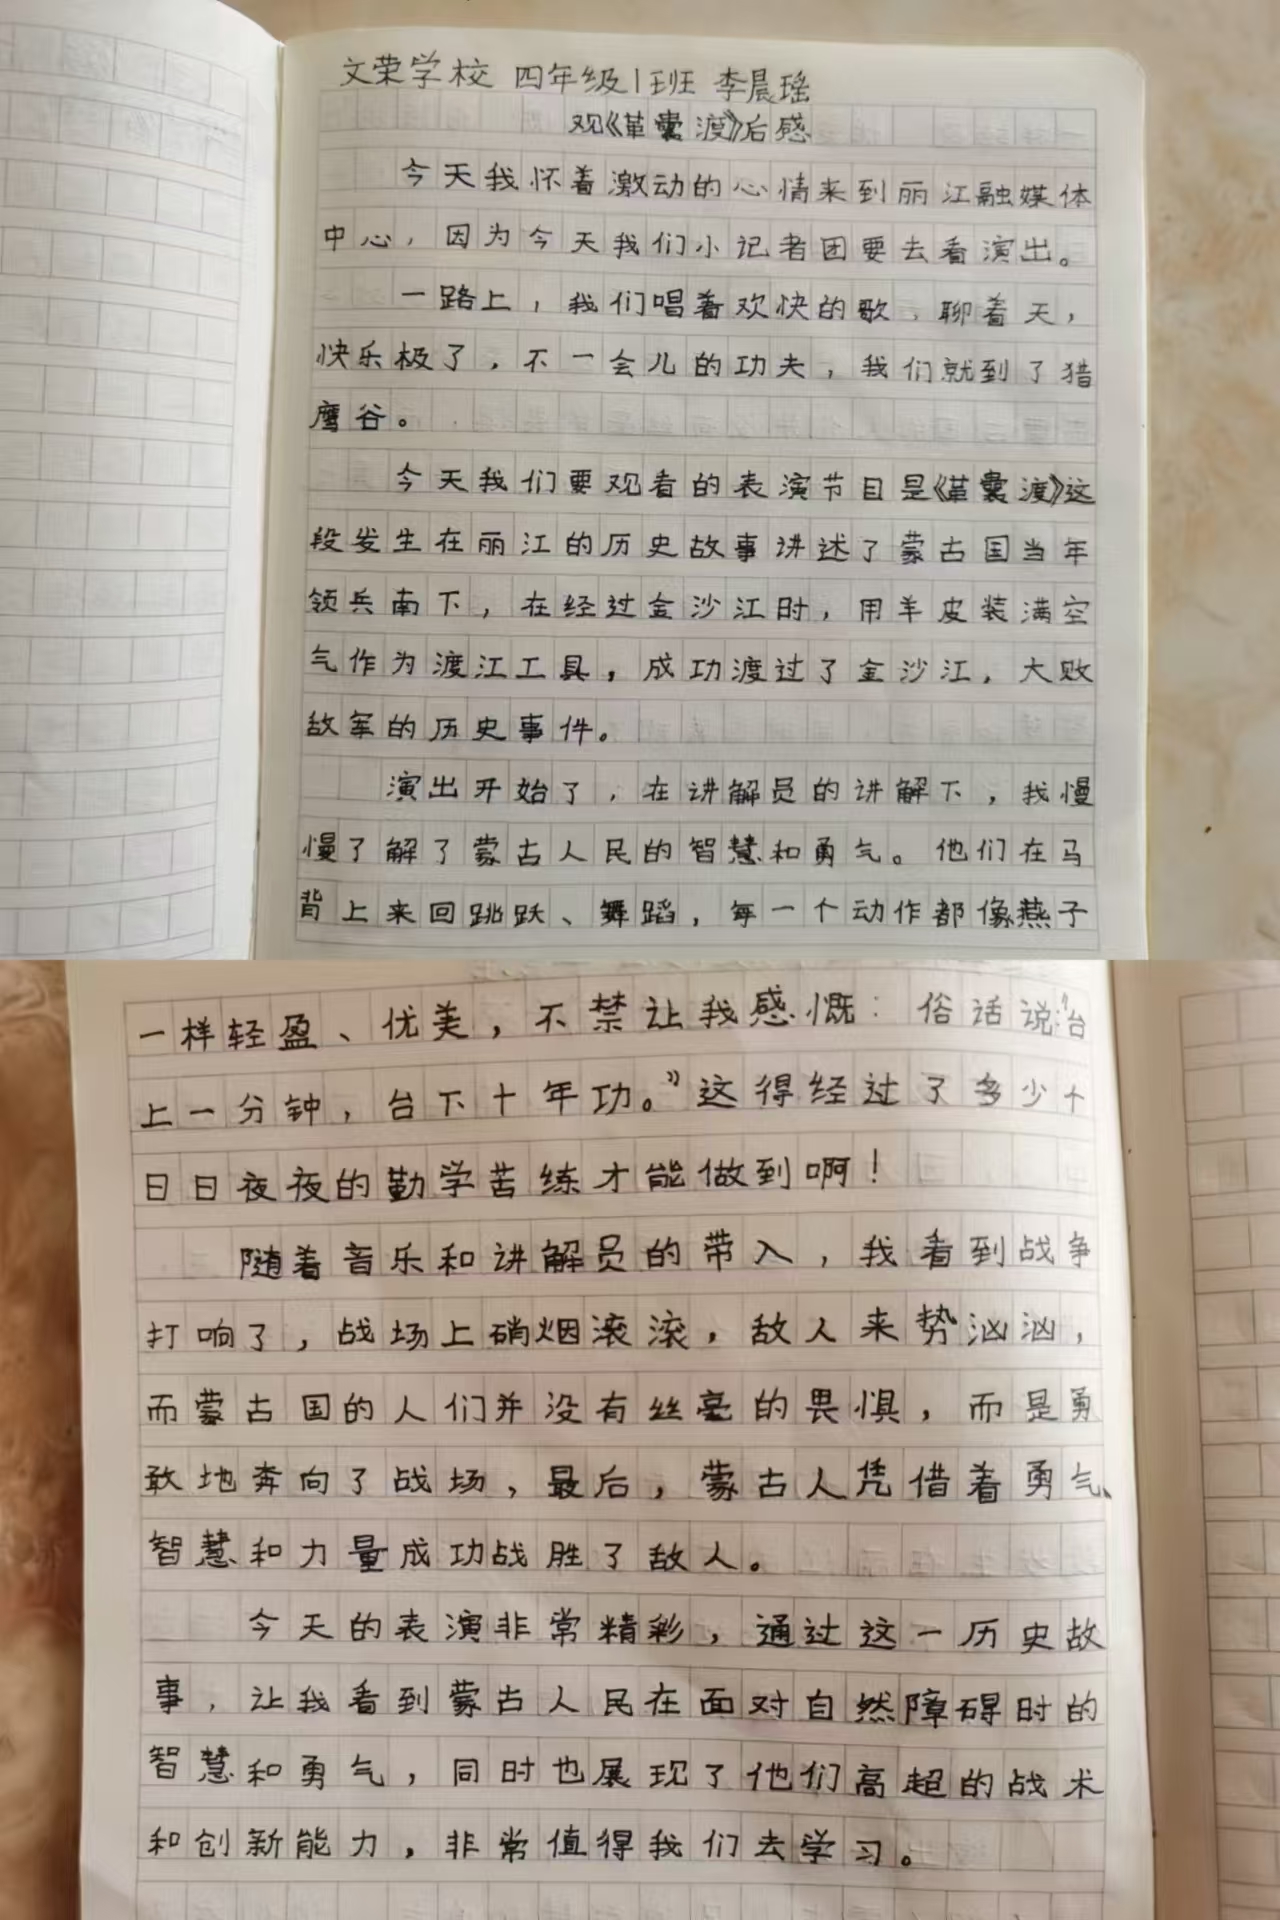 文荣学校 四年级1班 李晨瑶
观《革囊渡》后感
今天我怀着激动的心情来到丽江融媒体
中心，因为今天我们小记者团要去看演出。
一路上，我们唱着欢快的歌，聊着天，
快乐极了，不一会儿的功夫，我们就到了猎
鹰谷。
今天我们要观看的表演节目是《革囊渡》这
段发生在丽江的历史故事讲述了蒙古国当年
领兵南下，在经过金沙江时，用羊皮装满空
气作为渡江工具，成功渡过了金沙江，大败
敌军的历史事件。
演出开始了，在讲解员的讲解下，我慢
慢了解了蒙古人民的智慧和勇气。他们在马
背上来回跳跃、舞蹈，每一个动作都像燕子
一样轻盈、优美，不禁让我感慨：俗话说：“台
上一分钟，台下十年功。”这得经过了多少个
日日夜夜的勤学苦练才能做到啊！
随着音乐和讲解员的带入，我看到战争
打响了，战场上硝烟滚滚，敌人来势汹汹，
而蒙古国的人们并没有丝毫的畏惧，而是勇
敢地奔向了战场，最后，蒙古人凭借着勇气、
智慧和力量成功战胜了敌人。
今天的表演非常精彩，通过这一历史故
事，让我看到蒙古人民在面对自然障碍时的
智慧和勇气，同时也展现了他们高超的战术
和创新能力，非常值得我们去学习。